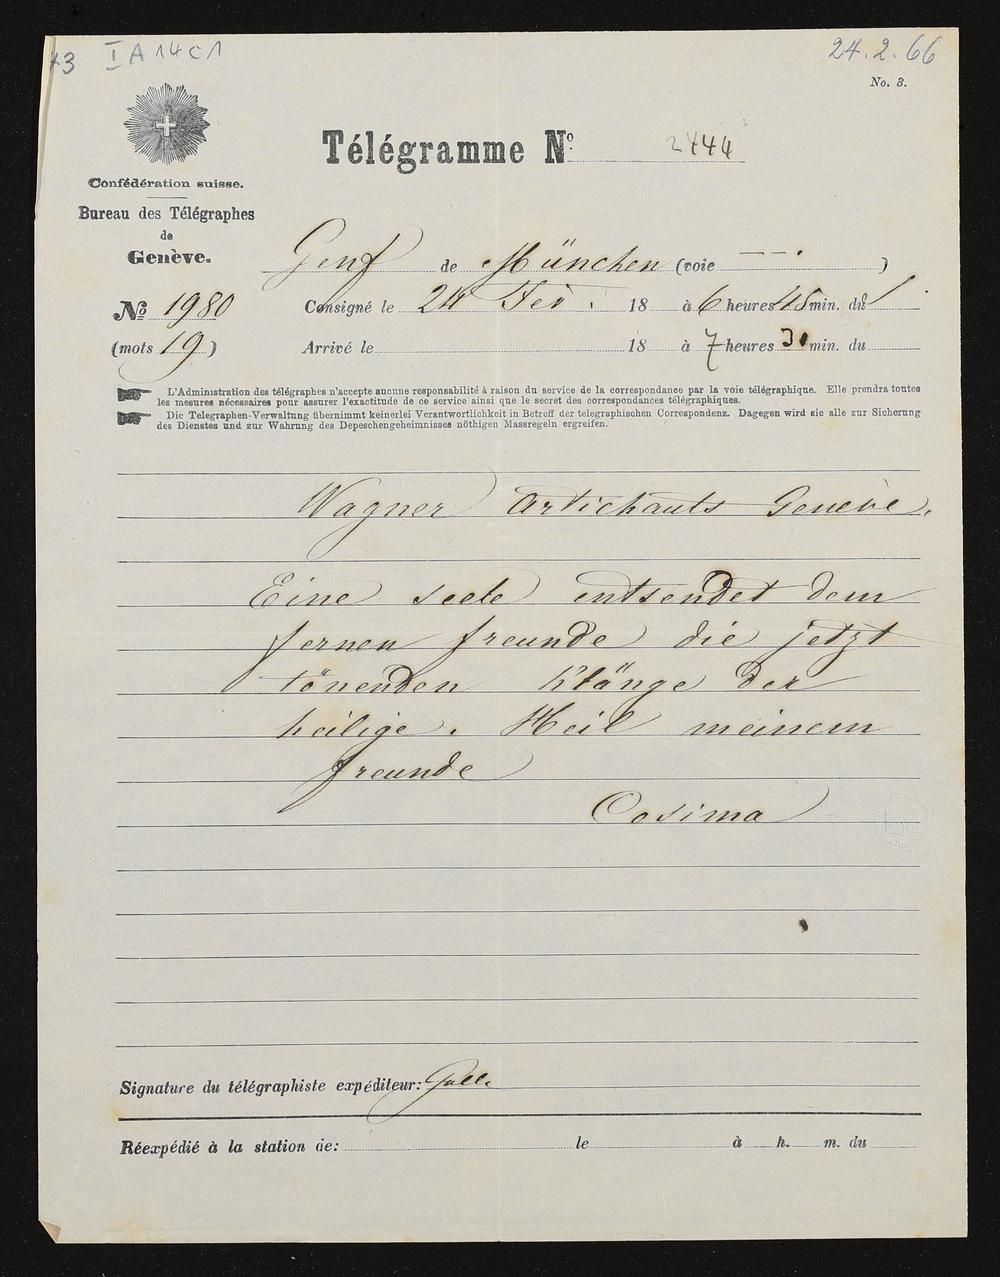 43 I A 14 c 1
24. 2. 66
No. 3.
Télégramme No. 2444
Confédération suisse.
Bureau des Télégraphes
de
Genève.
Genf de München (voie — — . )
No 1980 Consigné le 24 Fev. 18 à 6 heures 45 min. du
(mots 19) Arrivé le 18 à 7 heures 30 min. du
L'Administration des télégraphes n'accepte aucune responsabilité à raison du service de la correspondance par la voie télégraphique. Elle prendra toutes
les mesures nécessaires pour assurer l'exactitude de ce service ainsi que le secret des correspondances télégraphiques.
Die Telegraphen-Verwaltung übernimmt keinerlei Verantwortlichkeit in Betreff der telegraphischen Correspondenz. Dagegen wird sie alle zur Sicherung
des Dienstes und zur Wahrung des Depeschengeheimnisses nöthigen Massregeln ergreifen.
Wagner Artichauts Genève.
Eine seele entsendet dem
fernen freunde die jetzt
tönenden Klänge der
heilige. Heil meinem
freunde
Cosima
Signature du télégraphiste expéditeur:
Réexpédié à la station de: le à h. m. du